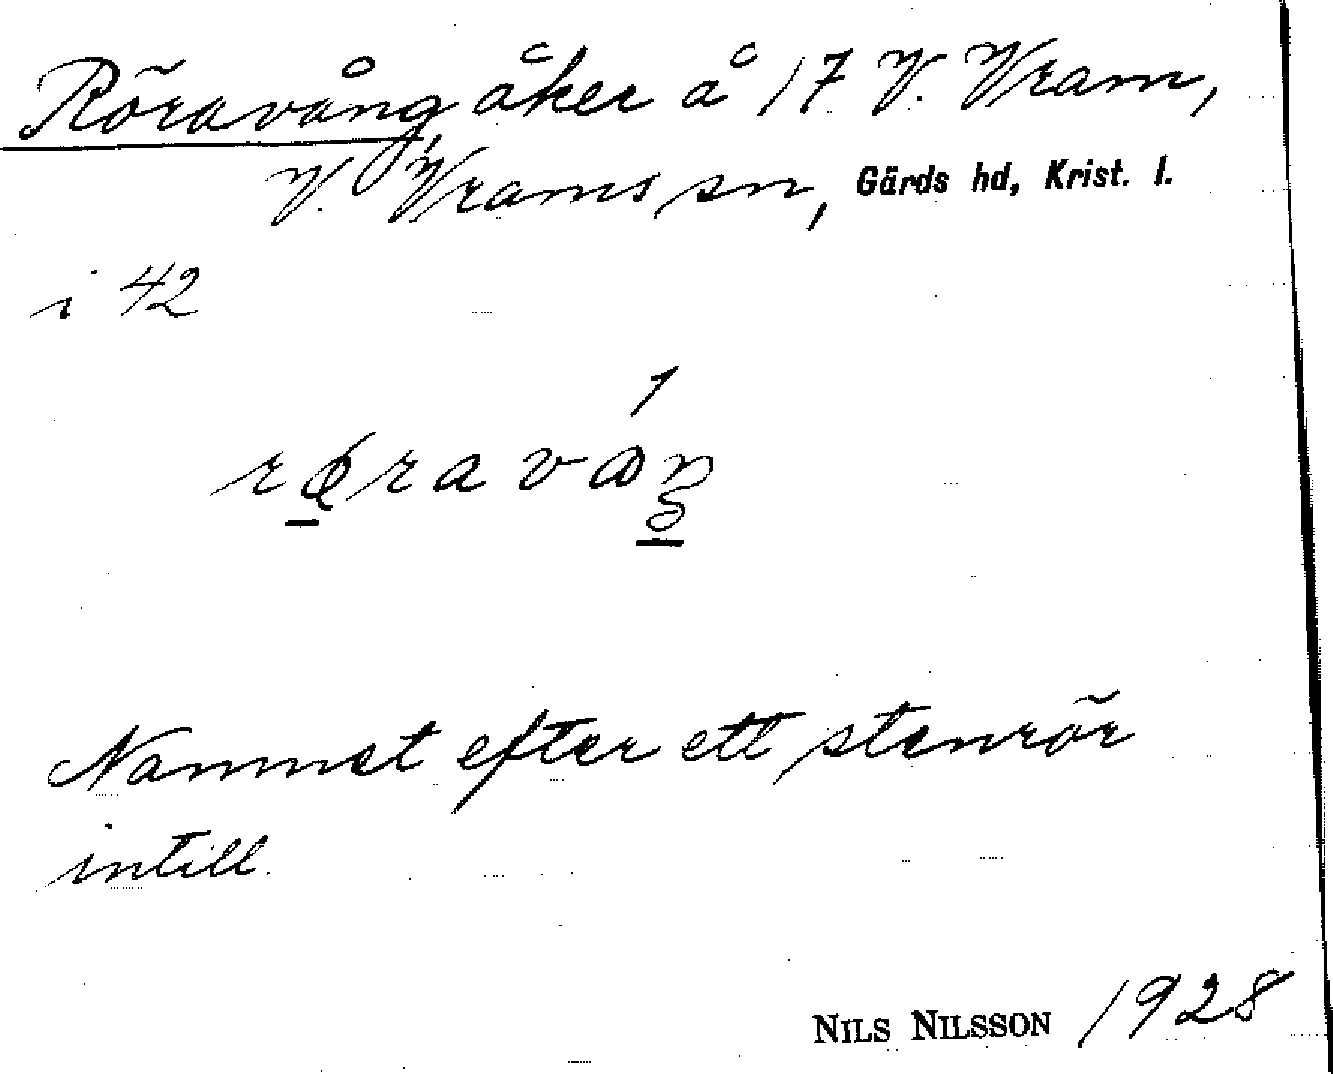 Röravång, åker å 17 V. Vram,
V. Vrams sn, Gärds hd, Krist. l.
i 42
1
røravåŋ
Namnet efter ett stenrör
intill.
NILS NILSSON 1928